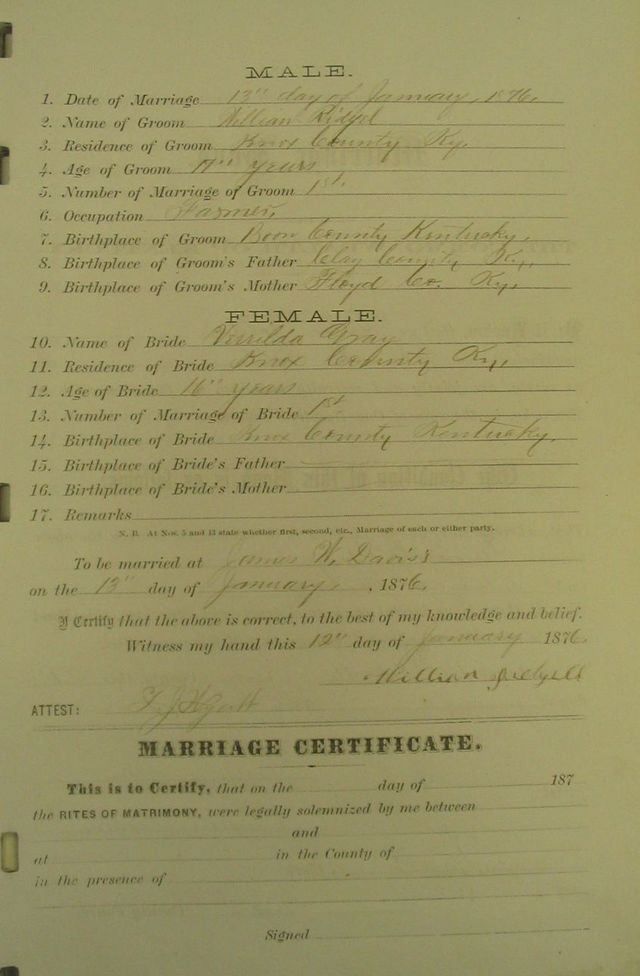 MALE.
1. Date of Marriage 13" day of January, 1876.
2. Name of Groom William
3. Residence of Groom Knox County Ky.
4. Age of Groom years
5. Number of Marriage of Groom 1st.
6. Occupation Farmer,
7. Birthplace of Groom Boon County Kentucky,
8. Birthplace of Groom's Father Clay County Ky,
9. Birthplace of Groom's Mother Floyd Co. Ky,
FEMALE.
10. Name of Bride Gray
11. Residence of Bride Knox County Ky,
12. Age of Bride 16" years
13. Number of Marriage of Bride 1st
14. Birthplace of Bride Knox County Kentucky.
15. Birthplace of Bride's Father
16. Birthplace of Bride's Mother
17. Remarks
N. B. At Nos. 5 and 13 state whether first, second, etc., Marriage of each or either party.
To be married at James W. Davis's
on the 13" day of January, 1876.
I Certify that the above is correct, to the best of my knowledge and belief.
Witness my hand this 12" day of January 1876.
William
ATTEST:
MARRIAGE CERTIFICATE.
This is to Certify, that on the day of 187
the RITES OF MATRIMONY, were legally solemnized by me between
and
at in the County of
in the presence of
Signed